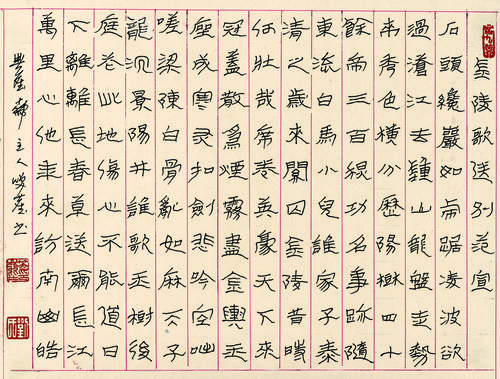 金陵歌送别范宣
石頭巉巖如虎踞凌波欲
過滄江去鍾山龍盤走勢
來秀色橫分歷陽樹四十
餘帝三百秋功名事跡隨
東流白馬小兒誰家子泰
清之歲來關囚金陵昔時
何壯哉席卷英豪天下來
冠蓋散為煙霧盡金輿玉
座成寒灰扣劍悲吟空咄
嗟梁陳白骨亂如麻天子
龍沉景陽井誰歌玉樹後
庭花此地傷心不能道目
下離離長春草送爾長江
萬里心他年來訪南幽皓
主人